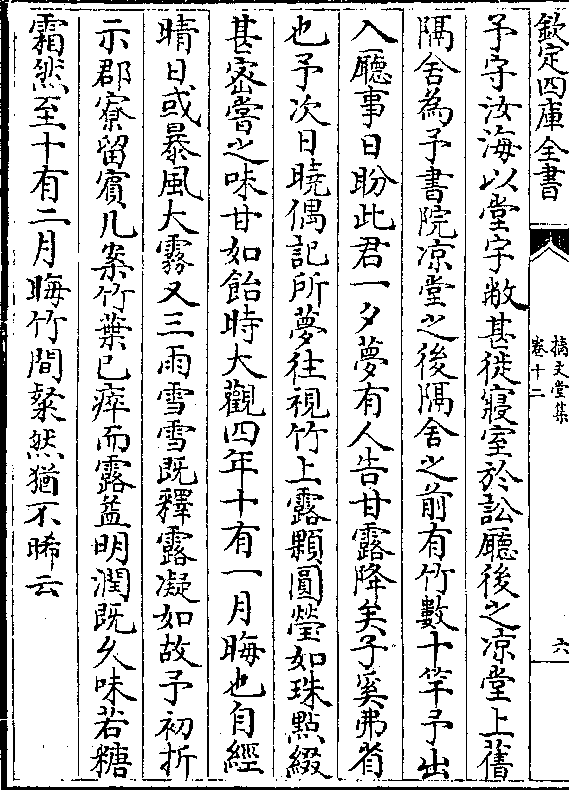 欽定四庫全書
摛文堂集
卷十二
六
予守汝海以堂宇敝甚徙寢室於訟廳後之凉堂上舊
隔舍為予書院凉堂之後隔舍之前有竹數十竿予出
入廳事日盼此君一夕夢有人告甘露降矣子奚弗省
也予次日曉偶記所夢往視竹上露顆圓瑩如珠點綴
甚密嘗之味甘如飴時大觀四年十有一月晦也自經
晴日或暴風大霧又三雨雪雪既釋露凝如故予初折
示郡寮留賓几案竹葉已瘁而露益明潤既久味若糖
霜然至十有二月晦竹間粲然猶不晞云